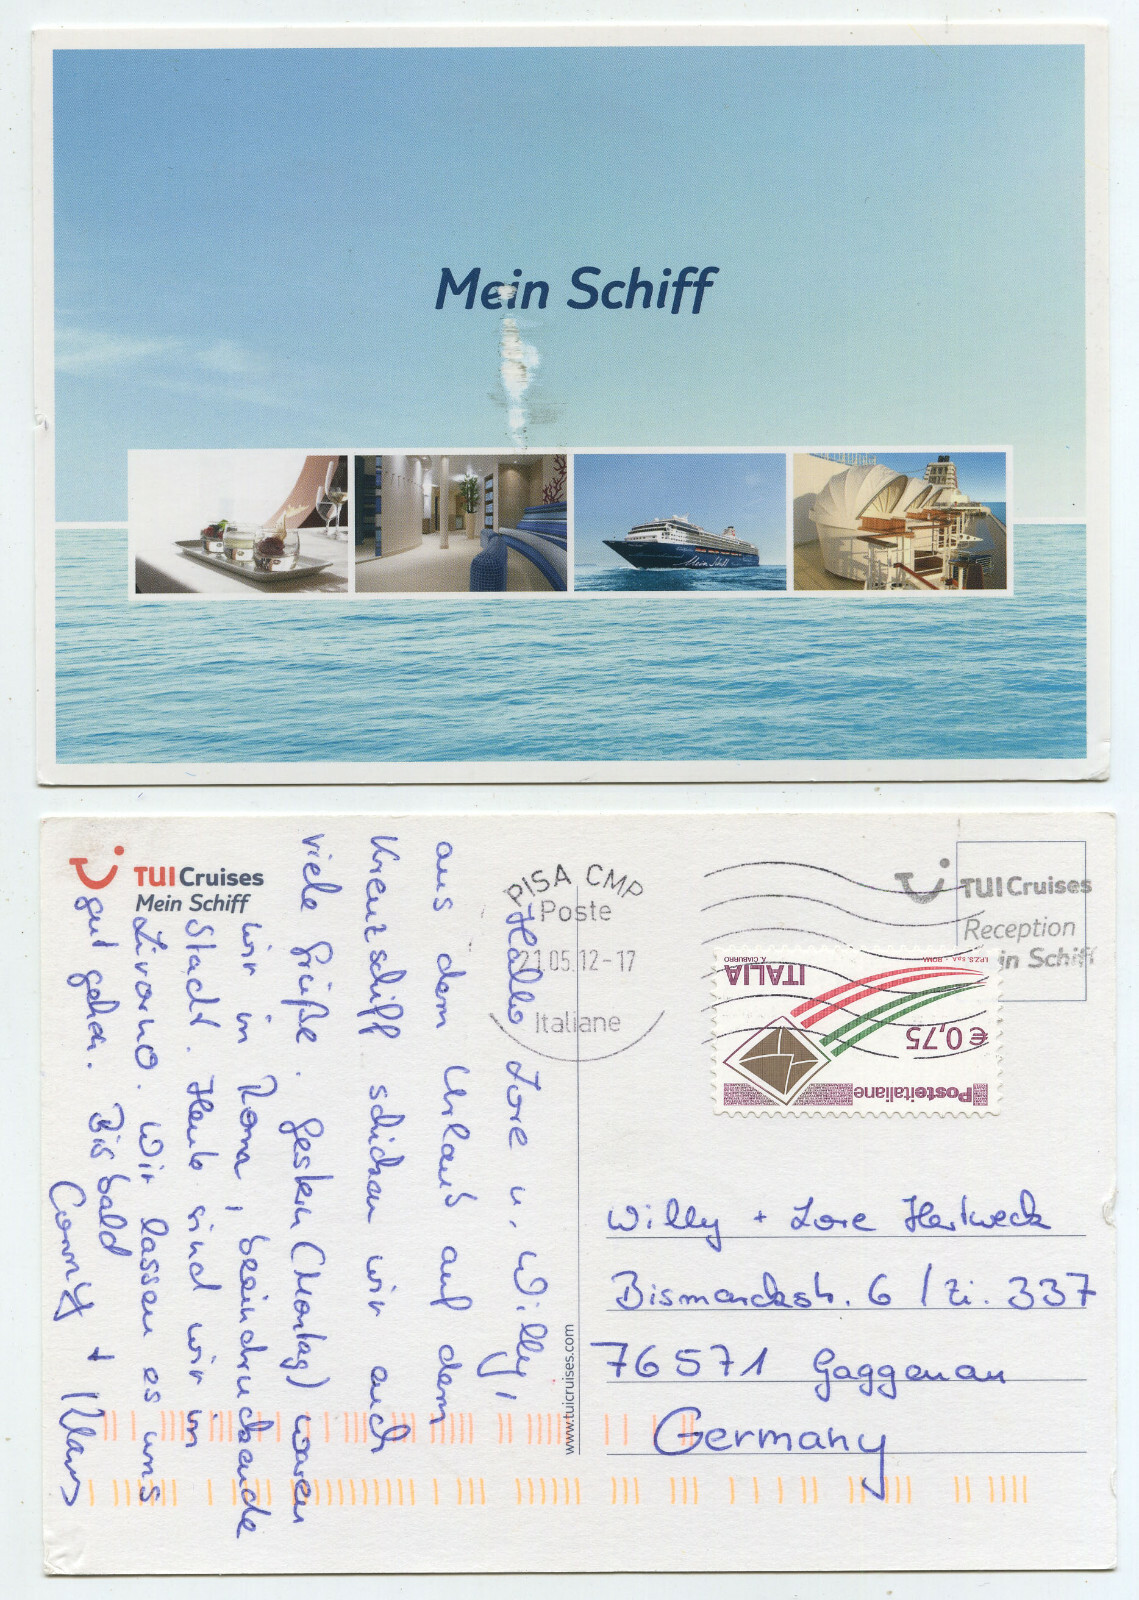 Mein Schiff
Mein Schiff
TUI Cruises
Mein Schiff
Hallo Lore u. Willy,
aus dem Urlaub auf dem
Kreuzschiff schicken wir euch
viele Grüße. Gestern (Montag) waren
wir in Roma, beeindruckende
Stadt. Heute sind wir in
Livorno. Wir lassen es uns
gut gehen. Bis bald
Conny + Klaus
PISA CMP
Poste
21.05.12-17
Italiane
TUI Cruises
Reception
Mein Schiff
ITALIA
A. CIABURRO
I.P.Z.S. S.p.A. - ROMA
€ 0,75
Posteitaliane
www.tuicruises.com
Willy + Lore Hertweck
Bismarckstr. 6 / Zi. 337
76571 Gaggenau
Germany